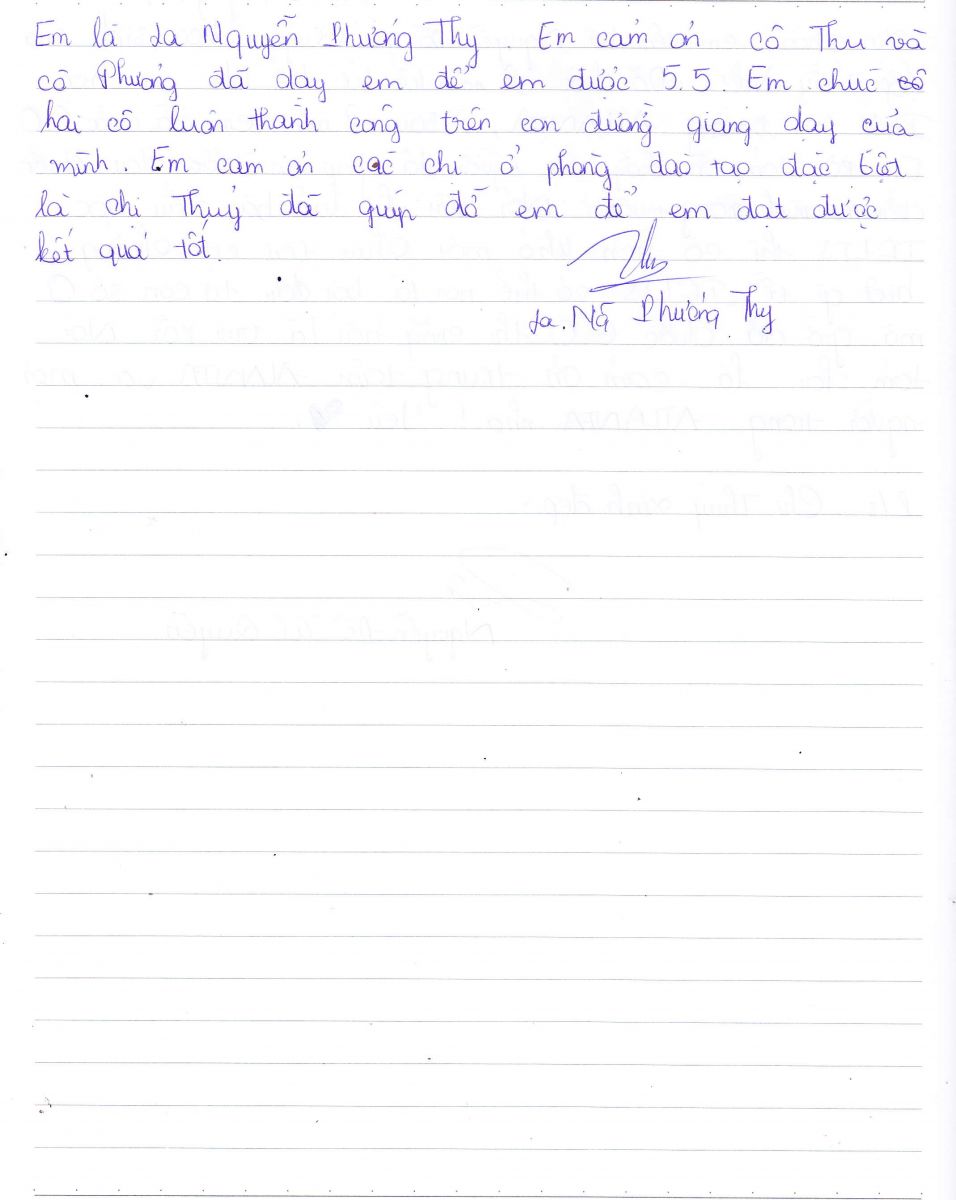 Em là La Nguyễn Phương Thy. Em cảm ơn cô Thu và
cô Phương đã dạy em để em được 5.5. Em chúc
hai cô luôn thành công trên con đường giảng dạy của
mình. Em cảm ơn các chị ở phòng đào tạo đặc biệt
là chị Thuỷ đã giúp đỡ em để em đạt được
kết quả tốt.
La. Ng̃ Phương Thy